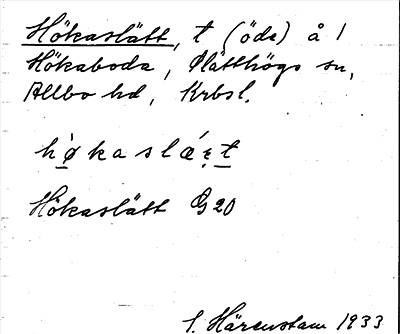 Hökaslätt, t (öde) å /
Hökaboda, Slätthögs sn,
Allbo hd, Krbsl.
hø̀kaslǽt
Hökaslätt G 20
S. Härenstam 1933